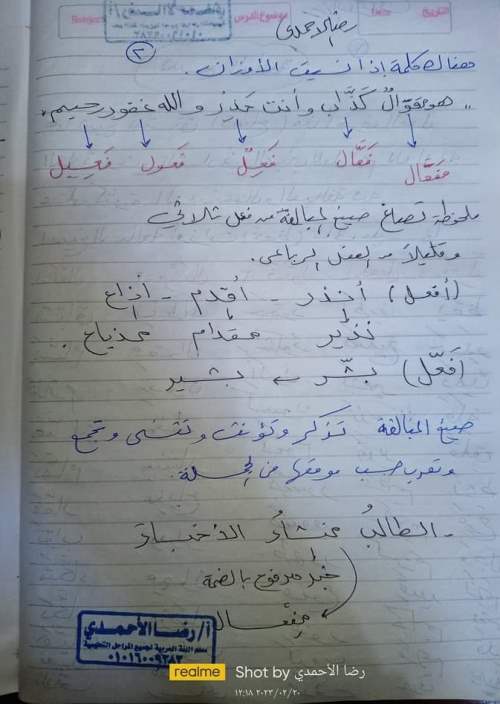 رضا الأحمدى
٢
هناك كلمة إذا نسيت الأوزان.
"هو مقوالٌ كذَّاب وأنت حَذِر والله غفور رحيم"
مِفعَّال فَعَّال فَعِلٌ فَعول فَعِيل
ملحوظة تصاغ صيغ المبالغة من فعل ثلاثي
وقليلاً من الفعل الرباعى.
(أفعل) أنذر - أقدم - أذاع
نذير مقدام مذياع.
(فَعَّل) بشَّر ← بشير
صيغ المبالغة تذكر وتؤنث وتثنى وتجمع
وتعرب حسب موقعها من الجملة.
- الطالبُ منشاءُ الأخبار
خبر مرفوع بالضمة
مِفْعال
أ/ رضا الأحمدي
معلم اللغة العربية لجميع المراحل التعليمية
٠١٠١٦٠٠٩٣٨٣
realme Shot by رضا الأحمدي
٢٠٢٣/٠٢/٢٠ ١٢:١٨